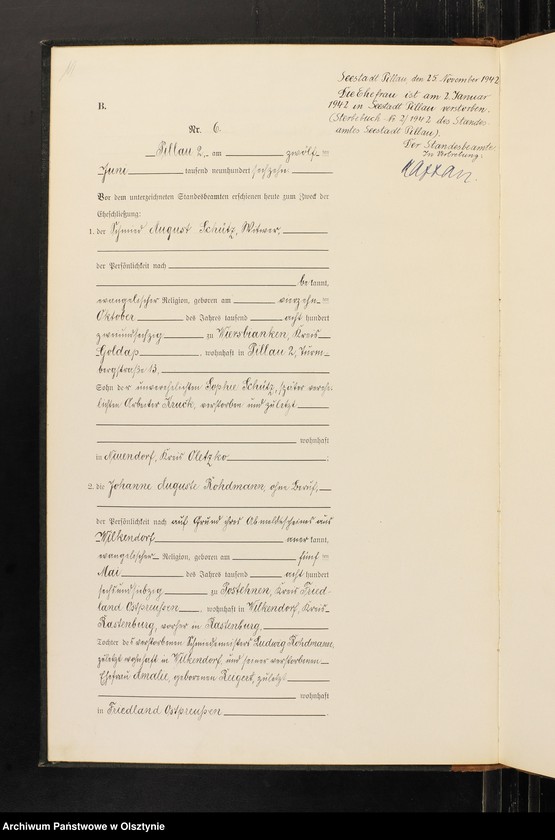 Seestadt Pillau, den 25. November 1942
Die Ehefrau ist am 2. Januar
1942 in Seestadt Pillau verstorben.
(Sterbebuch Nr. 2/1942 des Standes-
amtes Seestadt Pillau).
Der Standesbeamte
In Vertretung:
B.
Nr. 6.
Pillau 2, am zwölf ten
Juni tausend neunhundert sechzehn.
Vor dem unterzeichneten Standesbeamten erschienen heute zum Zweck der
Eheschließung:
1. der Schmied August Schütz, Witwer,
der Persönlichkeit nach
be kannt,
evangelischer Religion, geboren am vierzehn ten
Oktober des Jahres tausend acht hundert
zweiundsechzig zu Kreis
Goldap, wohnhaft in Pillau 2, Turm-
bergstraße 13,
Sohn der unverehelichten Sophie Schütz, später verehe-
lichten Arbeiter verstorben und zuletzt
wohnhaft
in Kreis Oletzko.
2. die Johanne Auguste Rohdmann, ohne Beruf,
der Persönlichkeit nach auf Grund ihres Abmeldescheines aus
Wilkendorf aner kannt,
evangelischer Religion, geboren am fünf ten
Mai des Jahres tausend acht hundert
sechsundsiebzig zu Postehnen, Kreis Fried-
land Ostpreußen, wohnhaft in Wilkendorf, Kreis
Rastenburg, vorher in Rastenburg,
Tochter des verstorbenen Schmiedemeisters Ludwig Rohdmann,
zuletzt wohnhaft in Wilkendorf, und seiner verstorbenen
Ehefrau Amalie, geborenen zuletzt
wohnhaft
in Friedland Ostpreußen
Archiwum Państwowe w Olsztynie